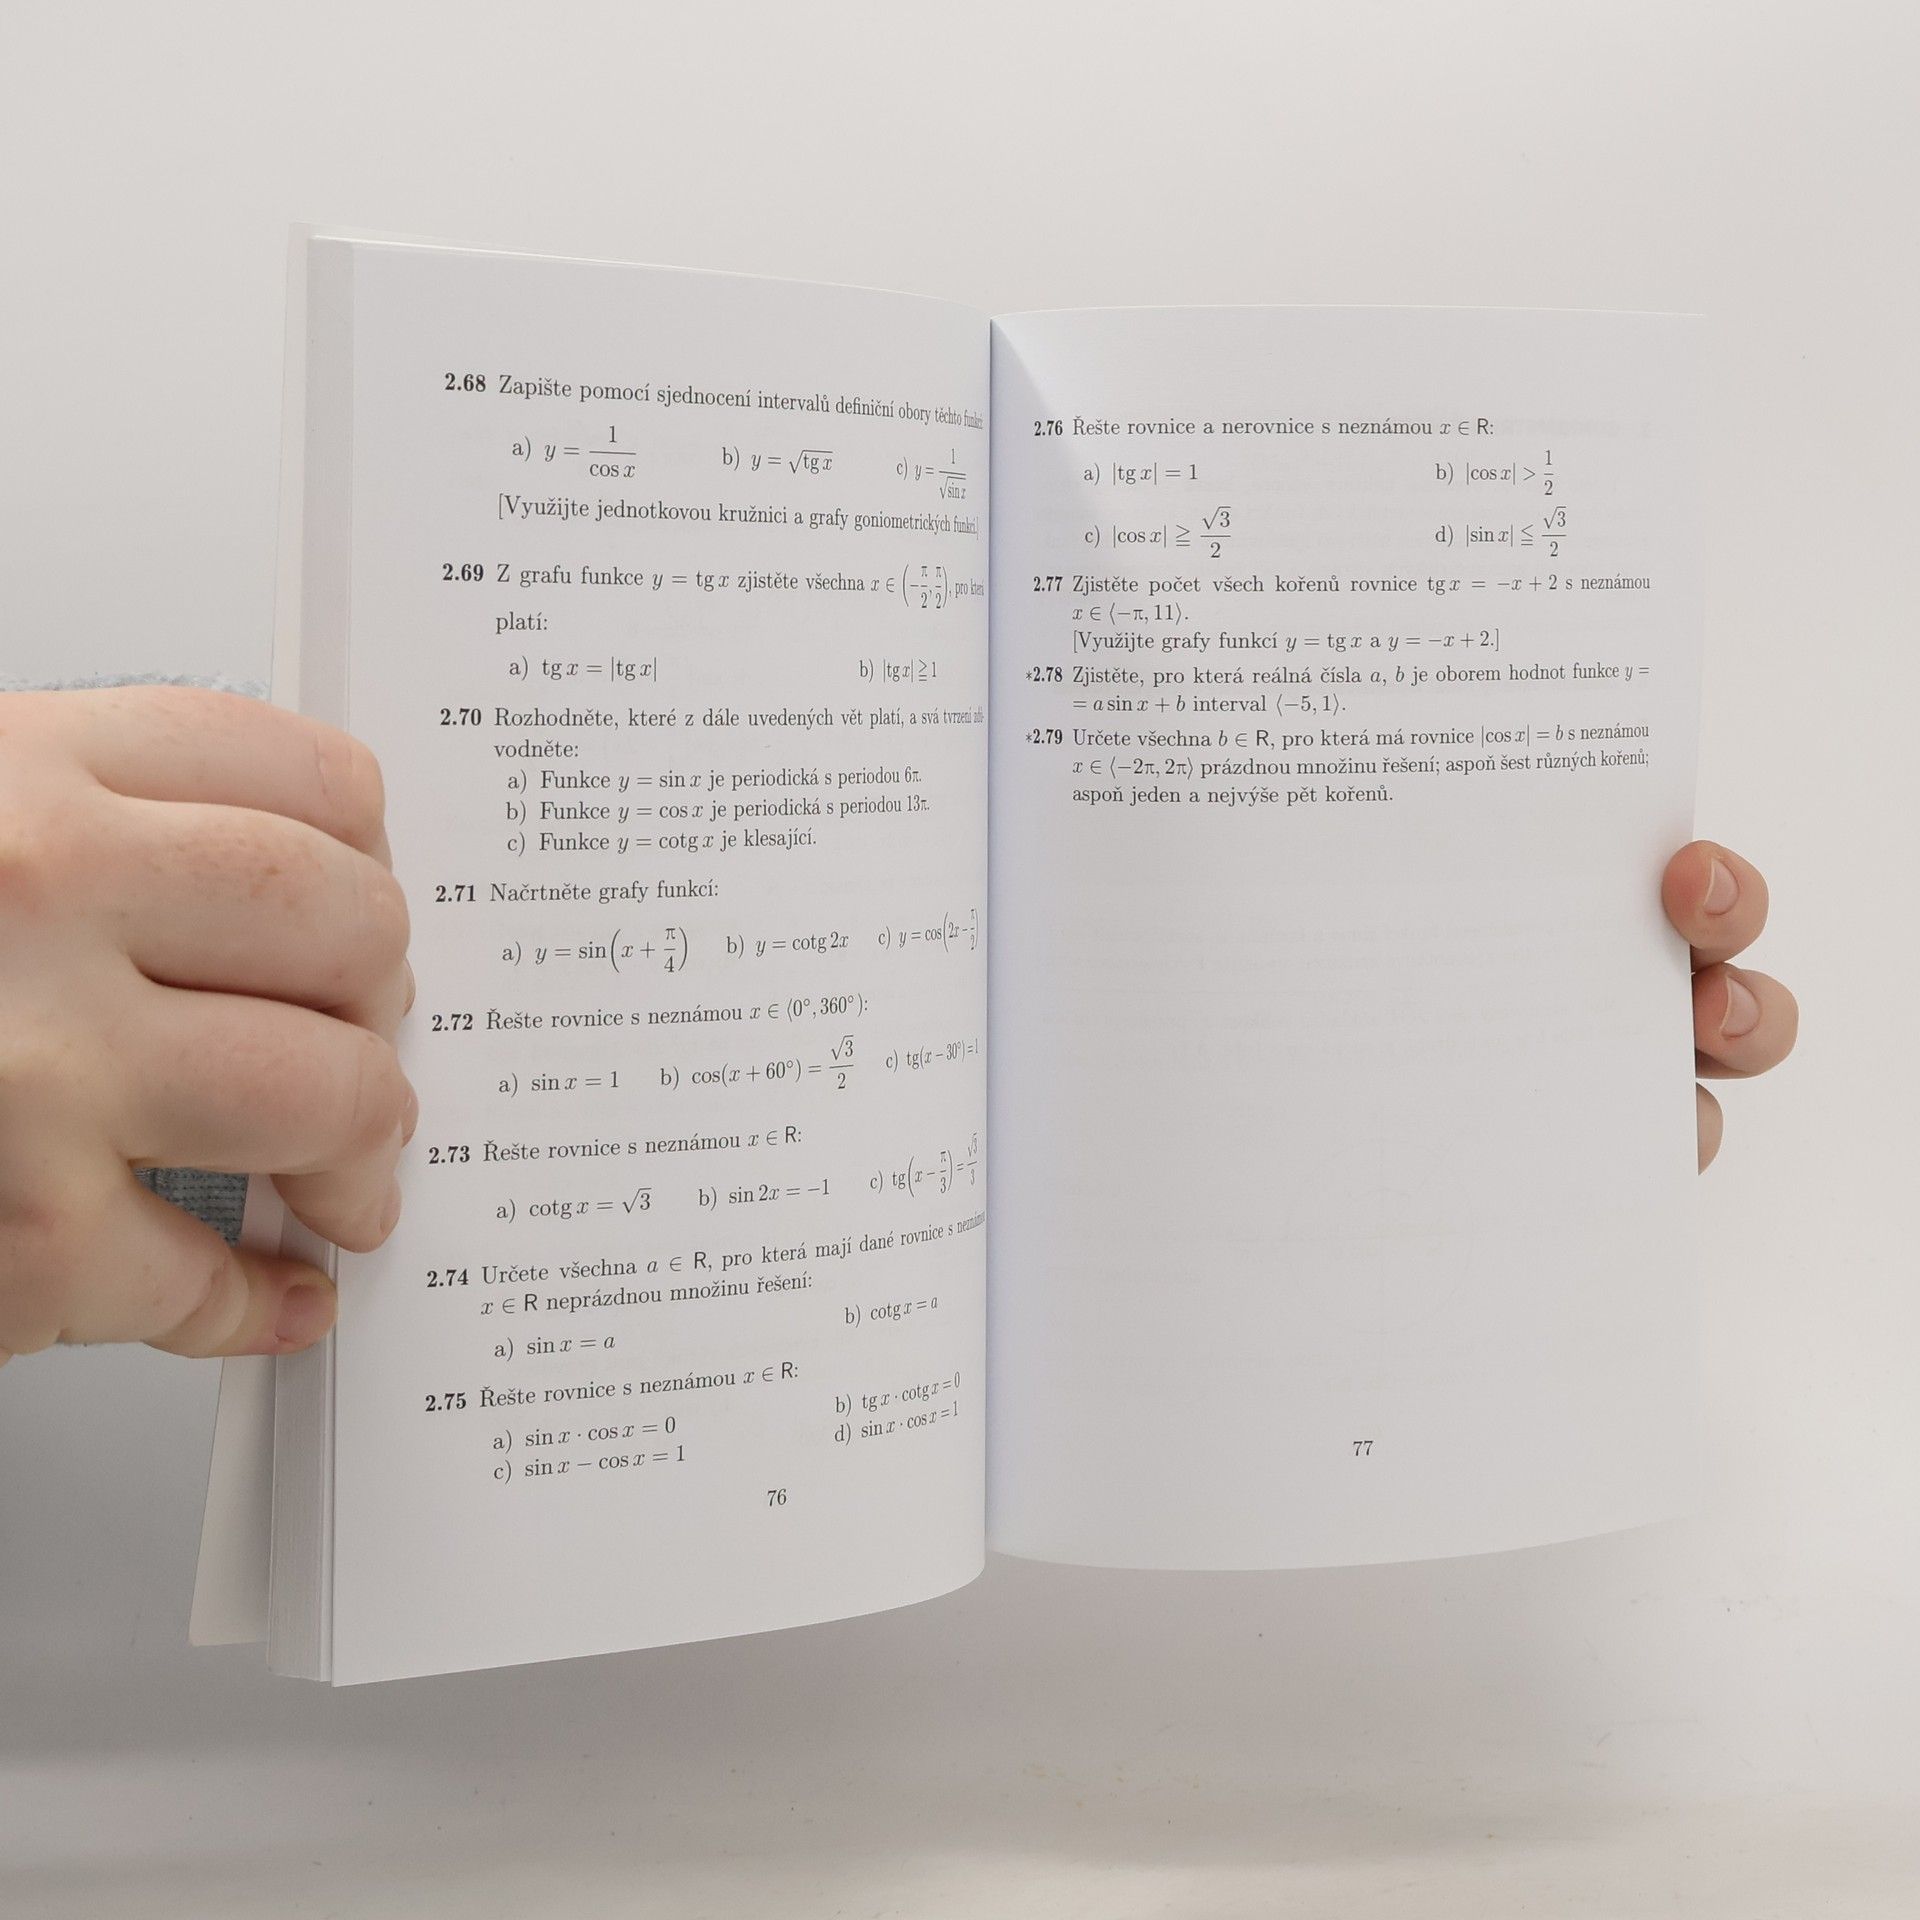 2.68 Zapište pomocí sjednocení intervalů definiční obory těchto funkcí
a) y = 1/cos x b) y = √tg x c) y = 1/√sin x
[Využijte jednotkovou kružnici a grafy goniometrických funkcí.]
2.69 Z grafu funkce y = tg x zjistěte všechna x ∈ (−π/2, π/2), pro která
platí:
a) tg x = |tg x| b) |tg x| ≧ 1
2.70 Rozhodněte, které z dále uvedených vět platí, a svá tvrzení zdů-
vodněte:
a) Funkce y = sin x je periodická s periodou 6π.
b) Funkce y = cos x je periodická s periodou 13π.
c) Funkce y = cotg x je klesající.
2.71 Načrtněte grafy funkcí:
a) y = sin(x + π/4) b) y = cotg 2x c) y = cos(2x − π/2)
2.72 Řešte rovnice s neznámou x ∈ ⟨0°, 360°):
a) sin x = 1 b) cos(x + 60°) = √3/2 c) tg(x − 30°) = 1
2.73 Řešte rovnice s neznámou x ∈ R:
a) cotg x = √3 b) sin 2x = −1 c) tg(x − π/3) = √3/3
2.74 Určete všechna a ∈ R, pro která mají dané rovnice s neznámou
x ∈ R neprázdnou množinu řešení:
a) sin x = a b) cotg x = a
2.75 Řešte rovnice s neznámou x ∈ R:
a) sin x · cos x = 0 b) tg x · cotg x = 0
c) sin x − cos x = 1 d) sin x · cos x = 1
76
2.76 Řešte rovnice a nerovnice s neznámou x ∈ R:
a) |tg x| = 1 b) |cos x| > 1/2
c) |cos x| ≧ √3/2 d) |sin x| ≦ √3/2
2.77 Zjistěte počet všech kořenů rovnice tg x = −x + 2 s neznámou
x ∈ ⟨−π, 11⟩.
[Využijte grafy funkcí y = tg x a y = −x + 2.]
*2.78 Zjistěte, pro která reálná čísla a, b je oborem hodnot funkce y =
= a sin x + b interval ⟨−5, 1⟩.
*2.79 Určete všechna b ∈ R, pro která má rovnice |cos x| = b s neznámou
x ∈ ⟨−2π, 2π⟩ prázdnou množinu řešení; aspoň šest různých kořenů;
aspoň jeden a nejvýše pět kořenů.
77